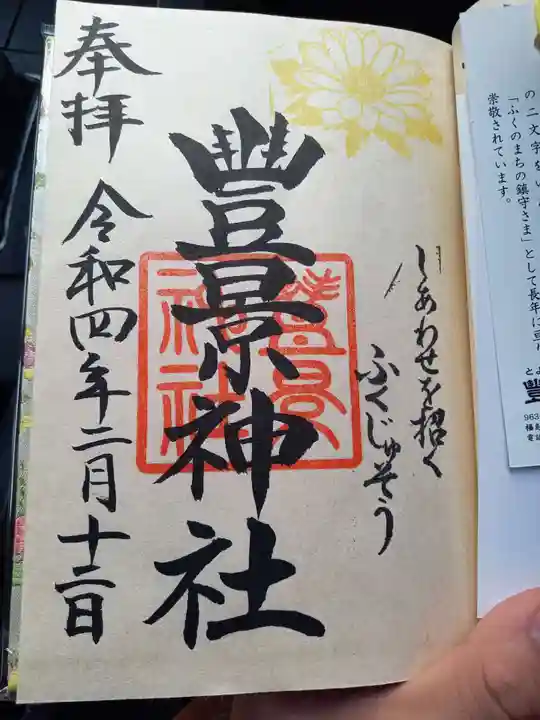 しあわせを招く
ふくじゅそう
豐景神社
豐景
神社
奉拝
令和四年二月十二日
の二文字を
「ふくのまちの鎮守さま」として長年に亘り
崇敬されています。
963
電話